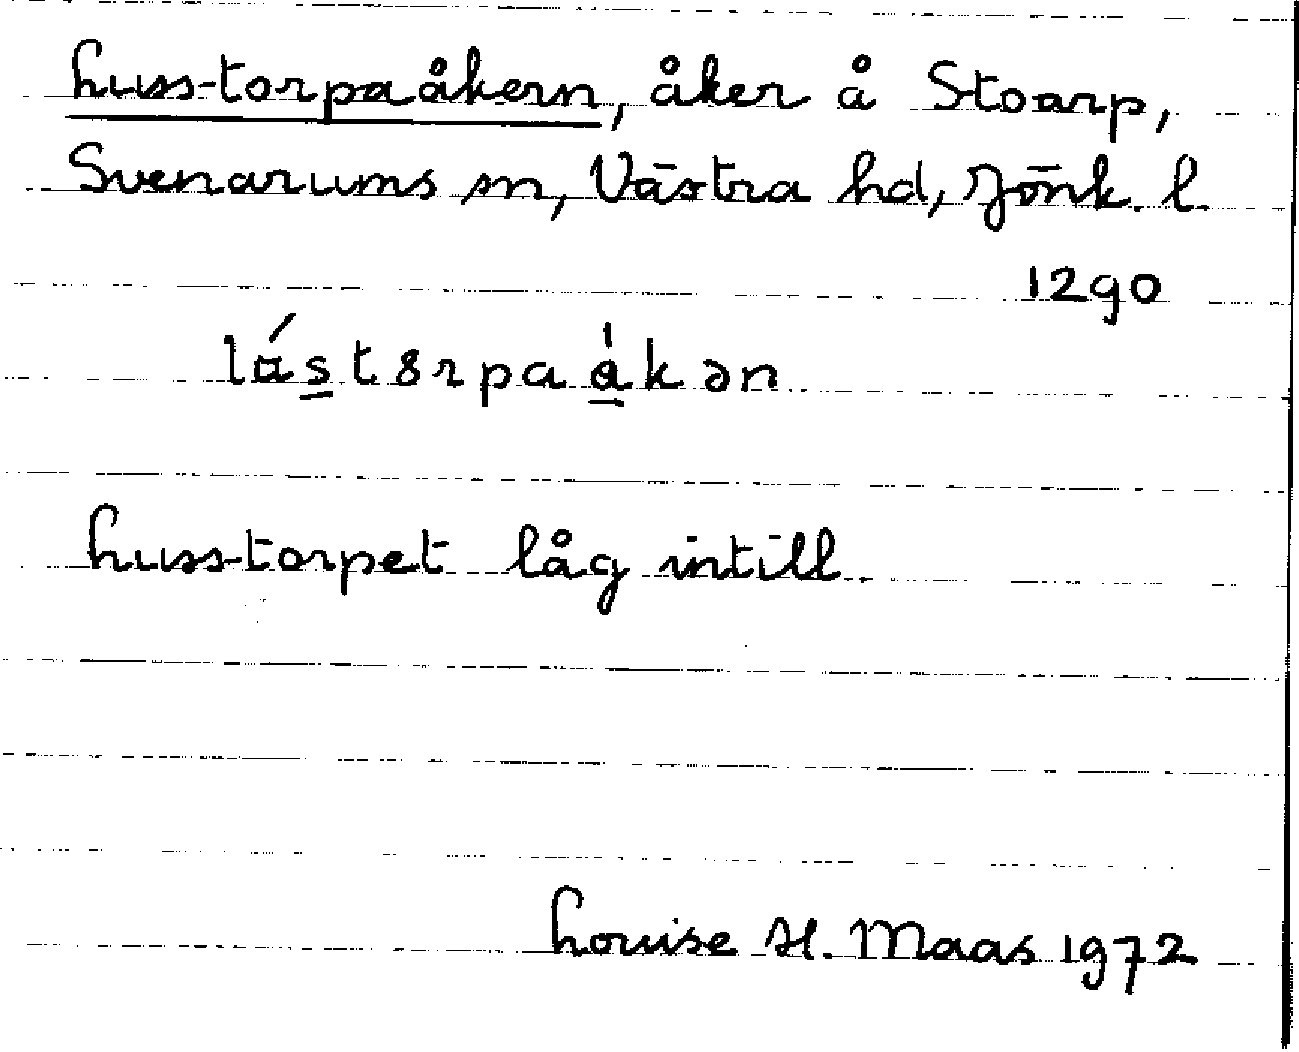 Luss-torpaåkern, åker å Stoarp,
Svenarums sn, Västra hd, Jönk. l.
1290
lástȣrpaàkən
Luss-torpet låg intill
Louise H. Maas 1972